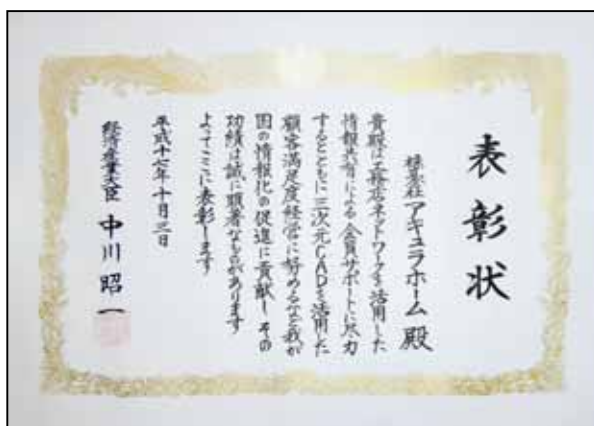 表彰状
株式会社アキュラホーム殿
貴殿は工務店ネットワークを活用した
情報共有による会員サポートに尽力
するとともに三次元CADを活用した
顧客満足度経営に努めるなど我が
国の情報化の促進に貢献しその
功績は誠に顕著なものがあります
よってここに表彰します
平成十七年十月三日
経済産業大臣 中川昭一